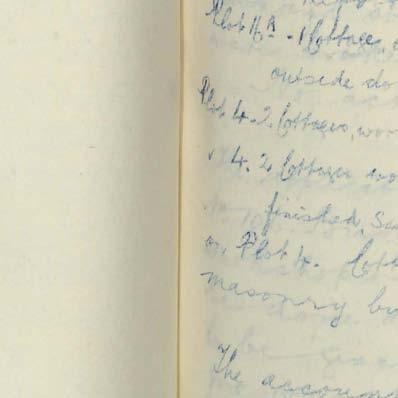 Plot 4A - 1 Cottage,
outside do
Plot 4. 2 Cottages, wor
" 4. 2 Cottages wo
finished, Su
on Plot 4. Cott
masonry bu
The accomp